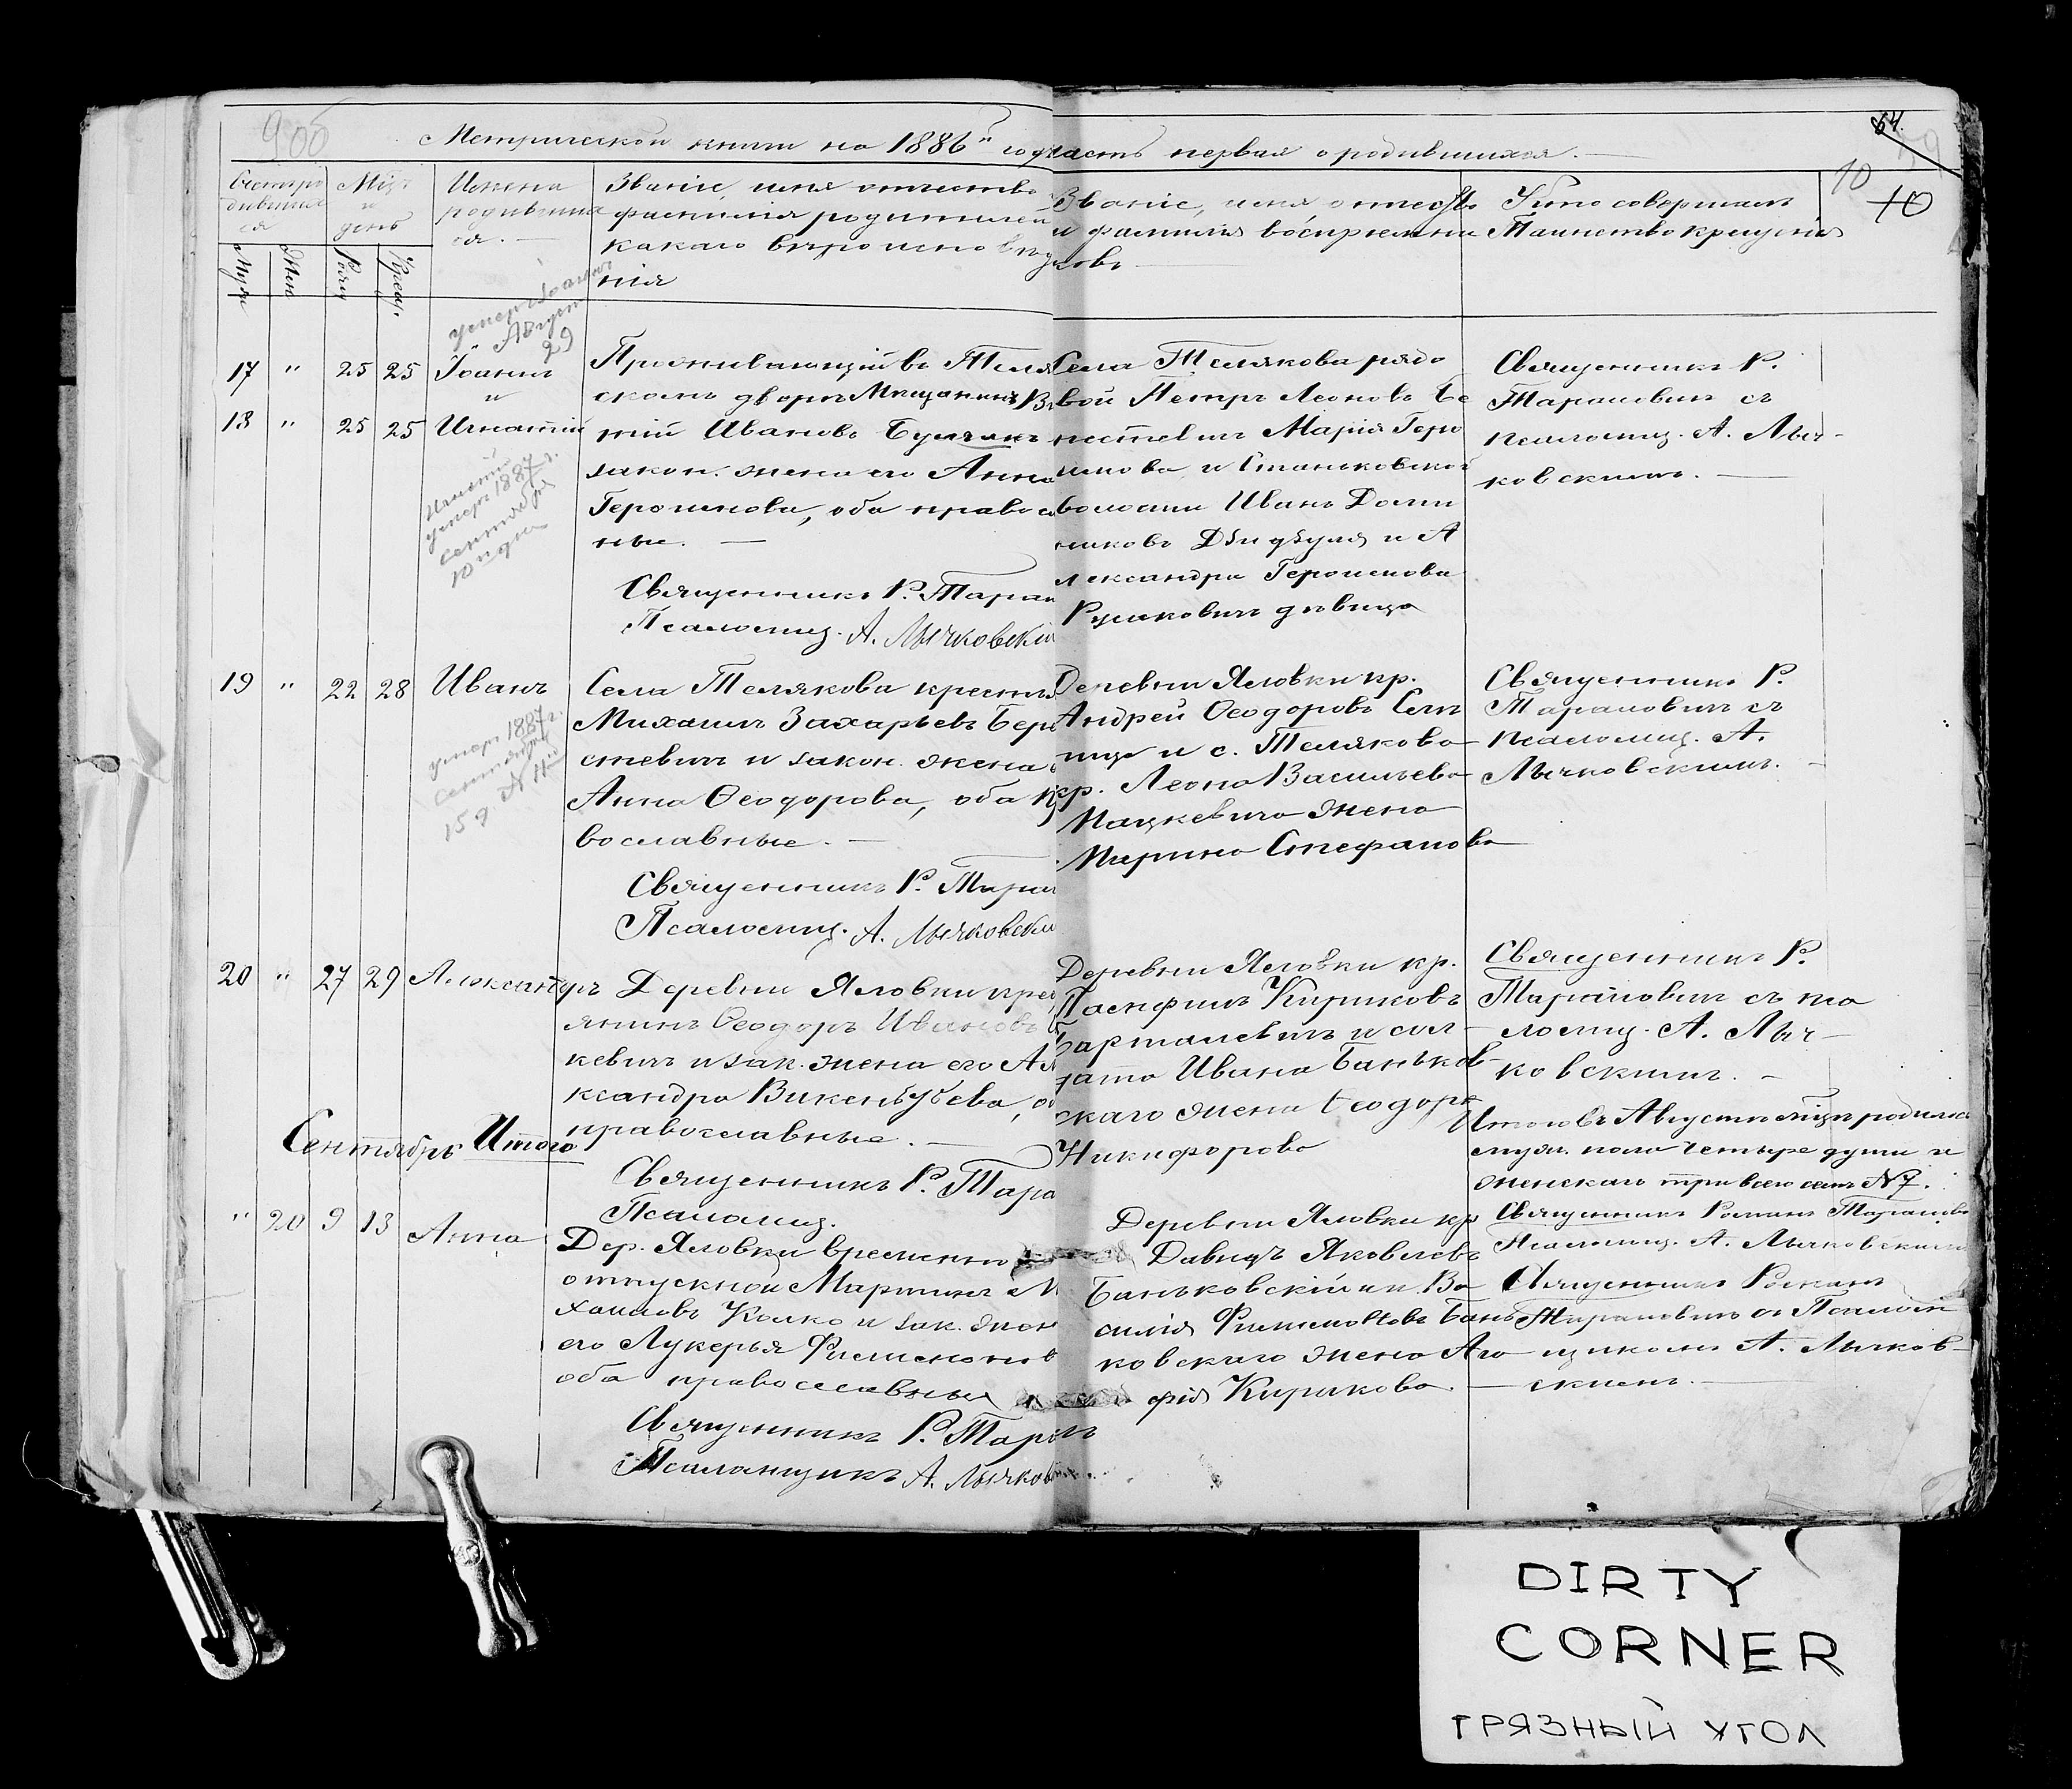 906
54.
59
10
10
Метрической книги на 1886 й годъ
часть первая о родившихся. —
Мѣсяцъ
и
день
Имена
родивших
ся. —
Званіе, имя отчество
фамилія родителей
какаго вѣроисповѣда
нія
Званіе, имя отчество
и фамилія воспріемни
ковъ
Кто совершилъ
Таинство крещенія
Муж
Жен
Рожд
Крещ.
умеръ Іоаннъ
Август
29
17 " 25 25 Іоаннъ
и
18 " 25 25 Игнатій
Игнатій
умеръ 1887 г.
сентября
10 дня
Проживающій въ Теля
скомъ дворѣ Мѣщанинъ Ви
тій Ивановъ
закон. жена его Анна
Геронимова, оба правос
ные. —
Священникъ Р. Таран
Псаломщ. А. Лычковскій
Села Телякова рядо
вой Петръ Леоновъ Бе
рестевичъ Марія Геро
нимова и Станьковской
волости Иванъ Доми
никовъ и А
лександра Геронимова
дѣвица
Священникъ Р.
Тарановичъ съ
псаломщ. А. Лыч-
ковскимъ. —
19 " 22 28 Иванъ
умеръ 1887 г.
сентября
15 д. № 11
Села Телякова крестья
Михаилъ Захарьевъ Бере
стевичъ и закон. жена
Анна Ѳеодорова, оба пр
вославные. —
Священникъ Р. Таран
Псаломщ. А. Лычковскі
Деревни Яловки кр.
Андрей Ѳеодоровъ
и с. Телякова
кр. Леона Васильева
Мацкевича жена
Марина Стефанова
Священникъ Р.
Тарановичъ съ
псаломщ. А.
Лычковскимъ. —
20 " 27 29 Александръ
Деревни Яловки крес
янинъ Ѳеодоръ Ивановъ
кевичъ и зак. жена его Ал
ксандра Викентьева, об
православные. —
Священникъ Р. Тара
Псаломщ.
Деревни Яловки кр.
Памфилъ Кириковъ
Барташевичъ и сол-
дата Ивана Баньков-
скаго жена Ѳеодора
Никифорова
Священникъ Р.
Тарановичъ съ пса
ломщ. А. Лыч-
ковскимъ. —
Сентябрь Итого
Итого въ Августѣ мѣсяцѣ родилось
мужск. пола четыре души и
женскаго три всего семь № 7.
Священникъ Романъ Таранович
Псаломщ. А. Лычковскій
" 20 9 13 Анна
Дер. Яловки временно
отпускной Мартинъ Ми
хаиловъ Колко и зак. жена
его Лукерья Филимонов
оба православныя
Священникъ Р. Таран
Псаломщикъ А. Лычков
Деревни Яловки кр
Давидъ Яковлевъ
Баньковскій и Ва
силія Филимонова Бань
ковскаго жена Ага
фія Кирикова. —
Священникъ Романъ
Тарановичъ съ Псалом
щикомъ А. Лычков-
скимъ. —
DIRTY
CORNER
ГРЯЗНЫЙ УГОЛ